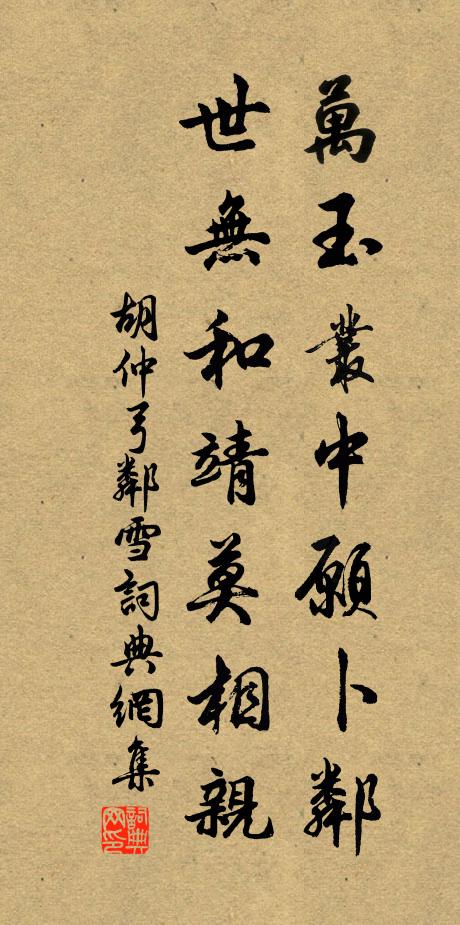 萬玉叢中願卜鄰
世無和靖莫相親
胡仲弓鄰雪詞典網集
詞典网印